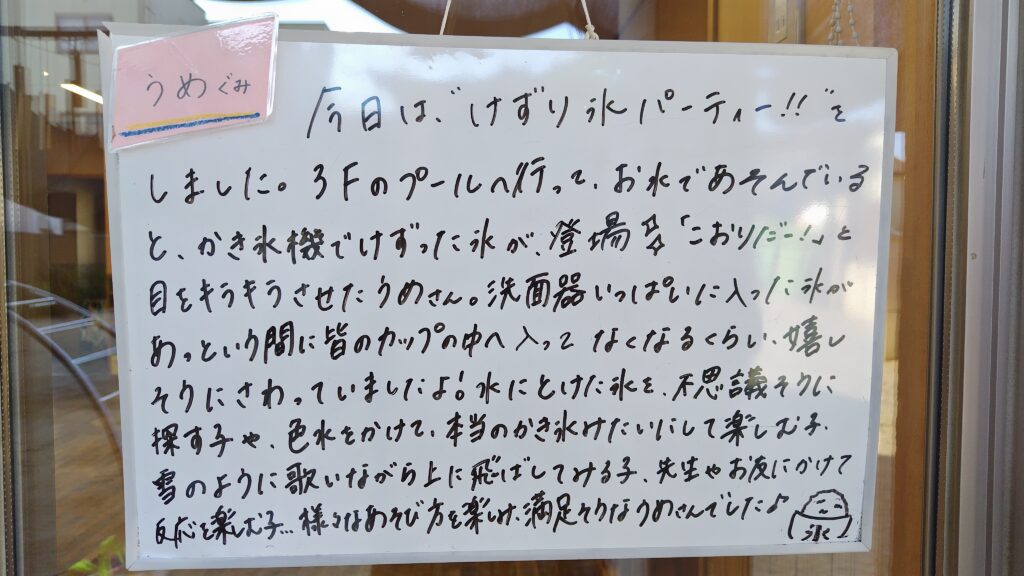 うめぐみ
今日は、"けずり氷パーティー!!"を
しました。3Fのプールへ行って、お水であそんでいる
と、かき氷機でけずった氷が、登場!!「こおりだー!」と
目をキラキラさせたうめさん。洗面器いっぱいに入った氷が
あっという間に皆のカップの中へ入って なくなるくらい、嬉し
そうにさわっていましたよ!水にとけた氷を、不思議そうに
探す子や、色水をかけて、本当のかき氷みたいにして楽しむ子、
雪のように歌いながら上に飛ばしてみる子、先生やお友にかけて
反応を楽しむ子…様々なあそび方を楽しみ、満足そうなうめさんでした♪
氷